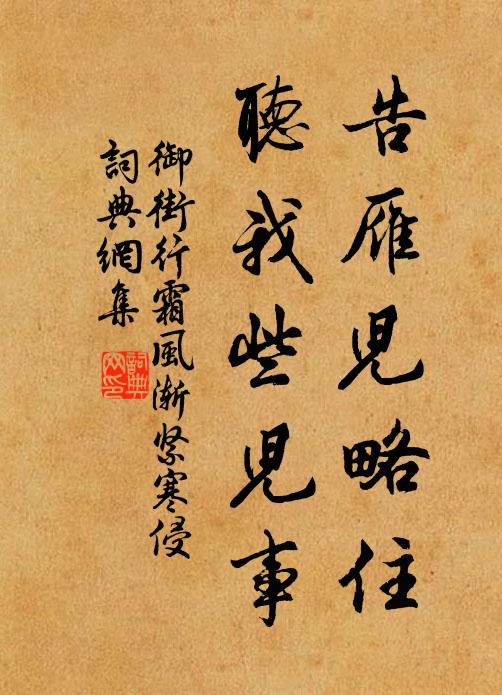 告雁兒略住
聽我些兒事
御街行霜風漸緊寒侵
詞典網集
詞典網印